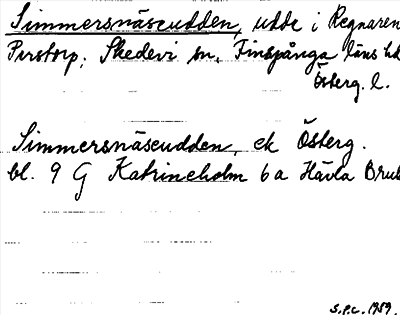 Simmersnäsudden, udde i Regnaren
Perstorp, Skedevi sn, Finspånga läns hd
Österg. l.
Simmersnäsudden, ek Österg.
bl. 9 G Katrineholm 6a Hävla Bruk
S.P.C. 1959.